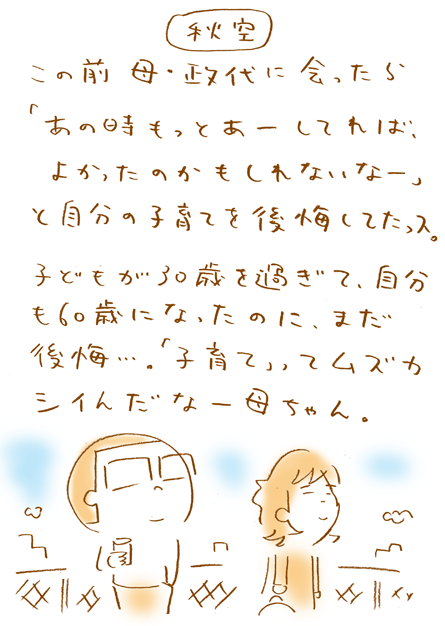 秋空
この前 母・政代に会ったら
「あの時もっとあーしてれば、
よかったのかもしれないなー」
と自分の子育てを後悔してたっス。
子どもが30歳を過ぎて、自分
も60歳になったのに、まだ
後悔…。「子育て」ってムズカ
シイんだなー母ちゃん。